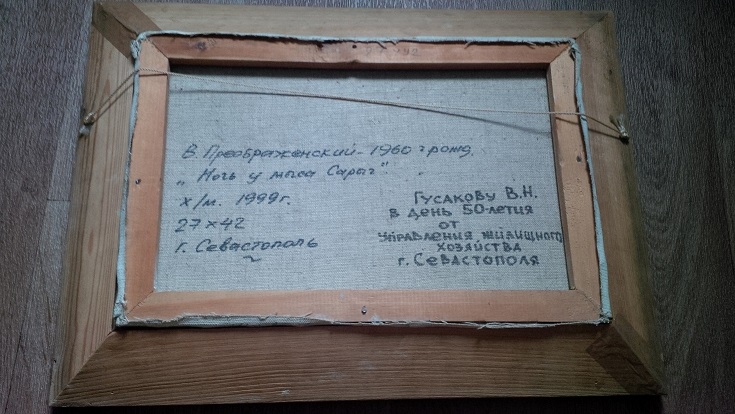 В. Преображенский - 1960 г рожд.
„Ночь у мыса Сарыч".
х/м. 1999г.
27 х 42
г. Севастополь
Гусакову В.Н.
в день 50-летия
от
управления жилищного
хозяйства
г. Севастополя